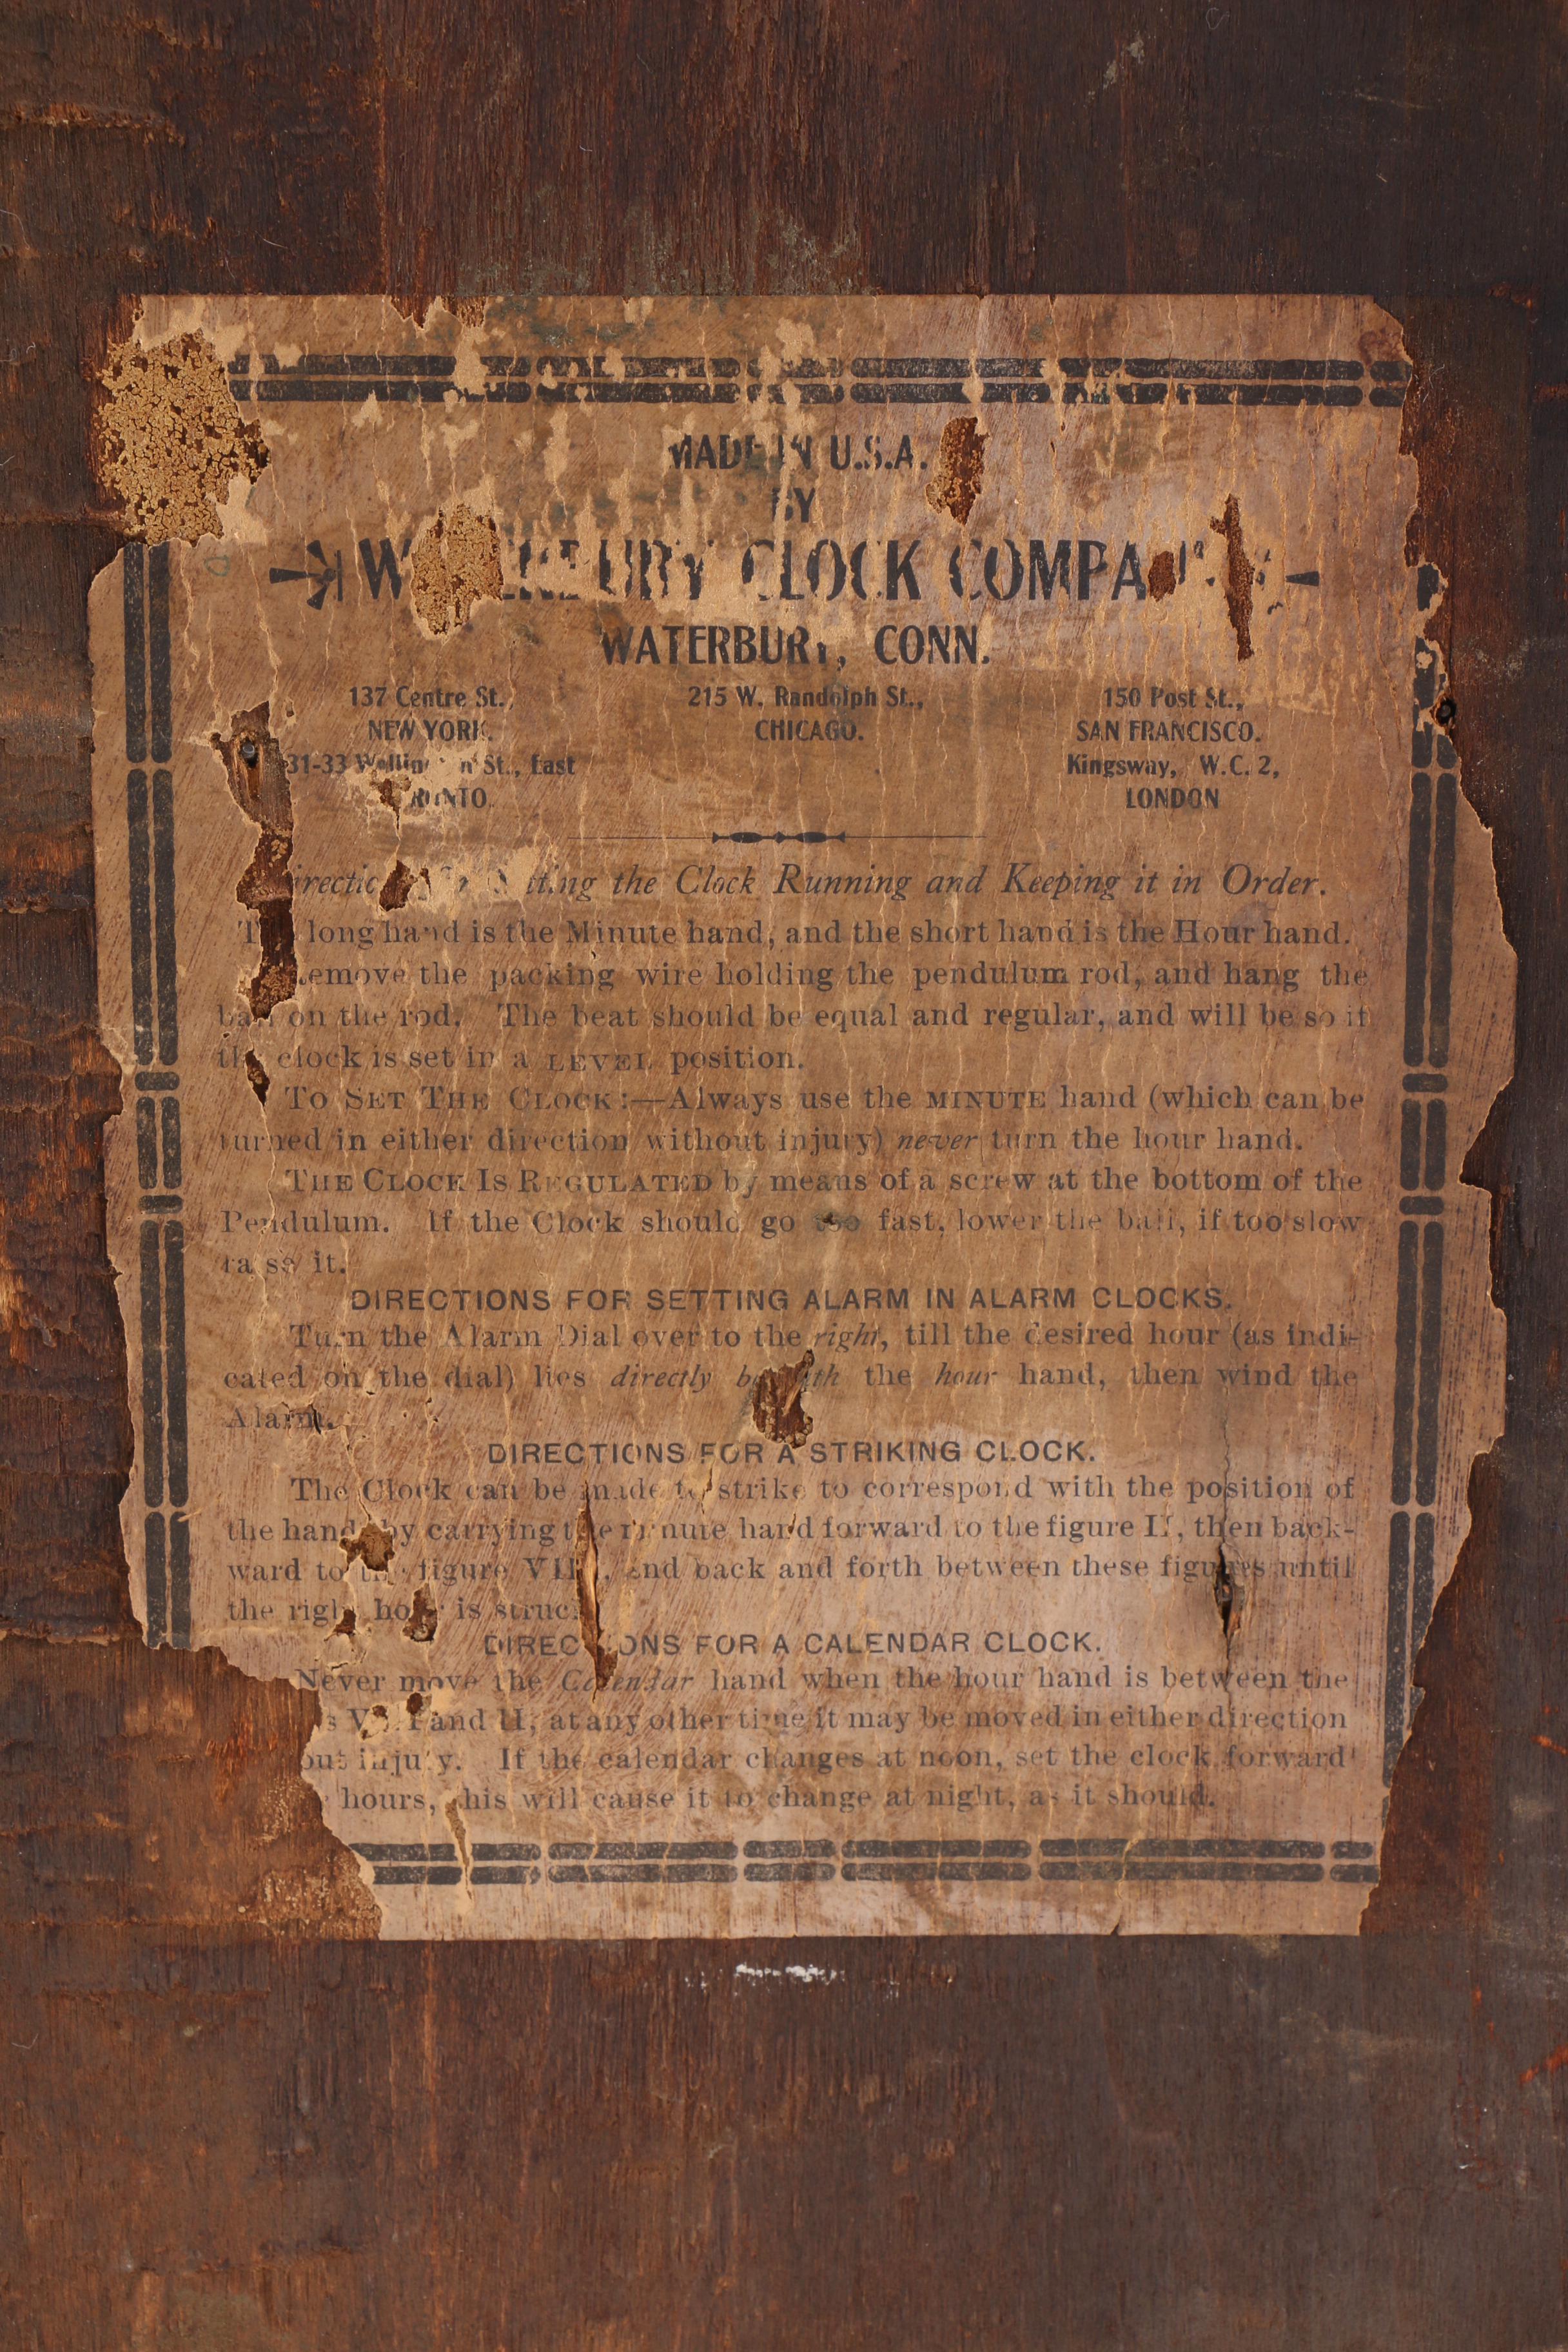 MADE IN U.S.A.
BY
WATERBURY CLOCK COMPANY
WATERBURY, CONN.
137 Centre St., 215 W. Randolph St., 150 Post St.,
NEW YORK. CHICAGO. SAN FRANCISCO.
31-33 Wellington St., East Kingsway, W.C. 2,
TORONTO. LONDON
Directions for Setting the Clock Running and Keeping it in Order.
The long hand is the Minute hand, and the short hand is the Hour hand.
Remove the packing wire holding the pendulum rod, and hang the
ball on the rod. The beat should be equal and regular, and will be so if
the clock is set in a LEVEL position.
TO SET THE CLOCK:—Always use the MINUTE hand (which can be
turned in either direction without injury) never turn the hour hand.
THE CLOCK IS REGULATED by means of a screw at the bottom of the
Pendulum. If the Clock should go too fast, lower the ball, if too slow
raise it.
DIRECTIONS FOR SETTING ALARM IN ALARM CLOCKS.
Turn the Alarm Dial over to the right, till the desired hour (as indi-
cated on the dial) lies directly beneath the hour hand, then wind the
Alarm.
DIRECTIONS FOR A STRIKING CLOCK.
The Clock can be made to strike to correspond with the position of
the hands by carrying the minute hand forward to the figure II, then back-
ward to the figure VIII, and back and forth between these figures until
the right hour is struck.
DIRECTIONS FOR A CALENDAR CLOCK.
Never move the Calendar hand when the hour hand is between the
VIII and II, at any other time it may be moved in either direction
injury. If the calendar changes at noon, set the clock forward
hours, this will cause it to change at night, as it should.